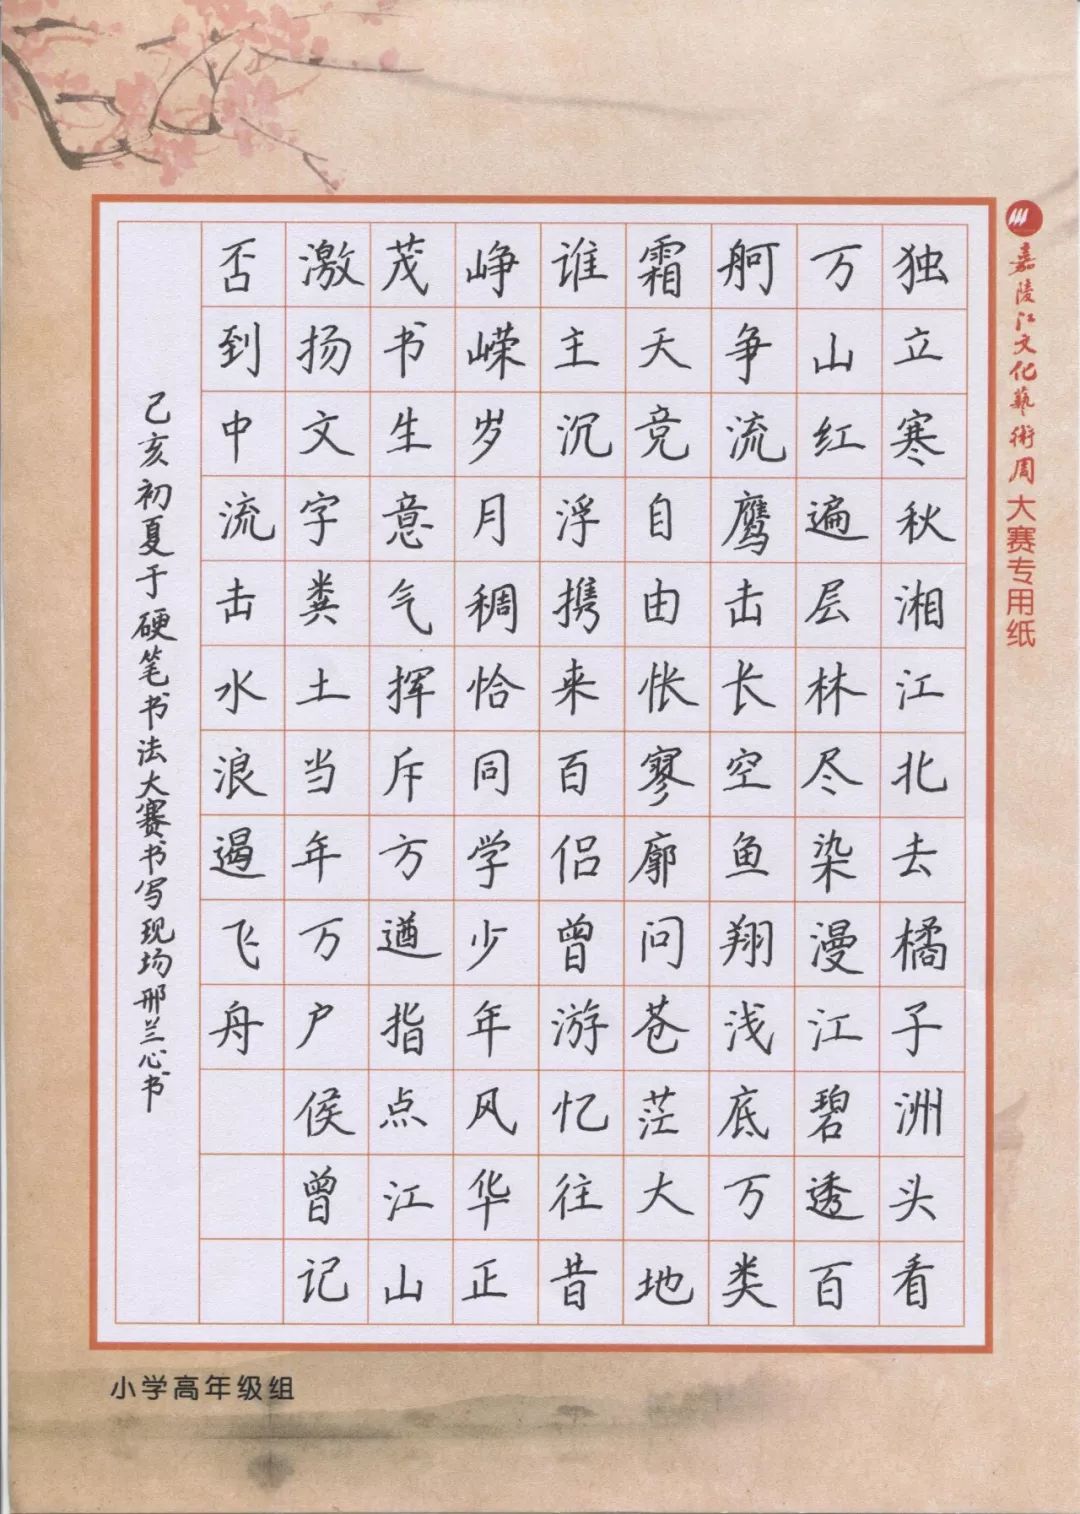 嘉陵江文化藝術周大赛专用纸
独立寒秋湘江北去橘子洲头看
万山红遍层林尽染漫江碧透百
舸争流鹰击长空鱼翔浅底万类
霜天竞自由怅寥廓问苍茫大地
谁主沉浮携来百侣曾游忆往昔
峥嵘岁月稠恰同学少年风华正
茂书生意气挥斥方遒指点江山
激扬文字粪土当年万户侯曾记
否到中流击水浪遏飞舟
己亥初夏于硬笔书法大赛书写现场邢兰心书
小学高年级组